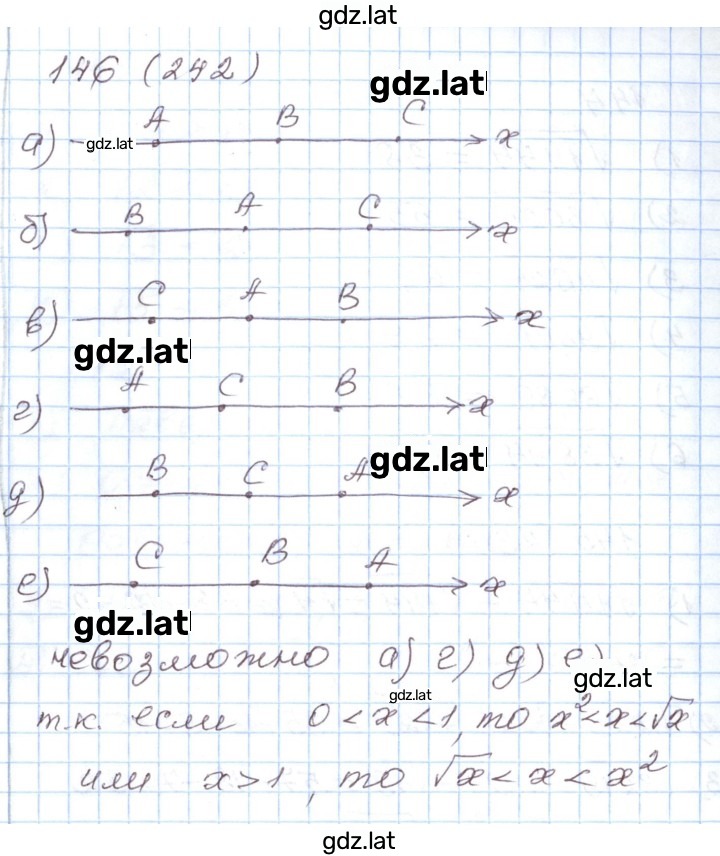 gdz.lat
146 (242)
gdz.lat
A B C
а) gdz.lat x
B A C
б) x
C A B
в) x
gdz.lat
A C B
г) x
gdz.lat
B C A
д) x
C B A
е) x
gdz.lat
невозможно а) г) д) е)
gdz.lat
gdz.lat
т.к. если 0 < x < 1, то x² < x < √x
или x > 1, то √x < x < x²
gdz.lat